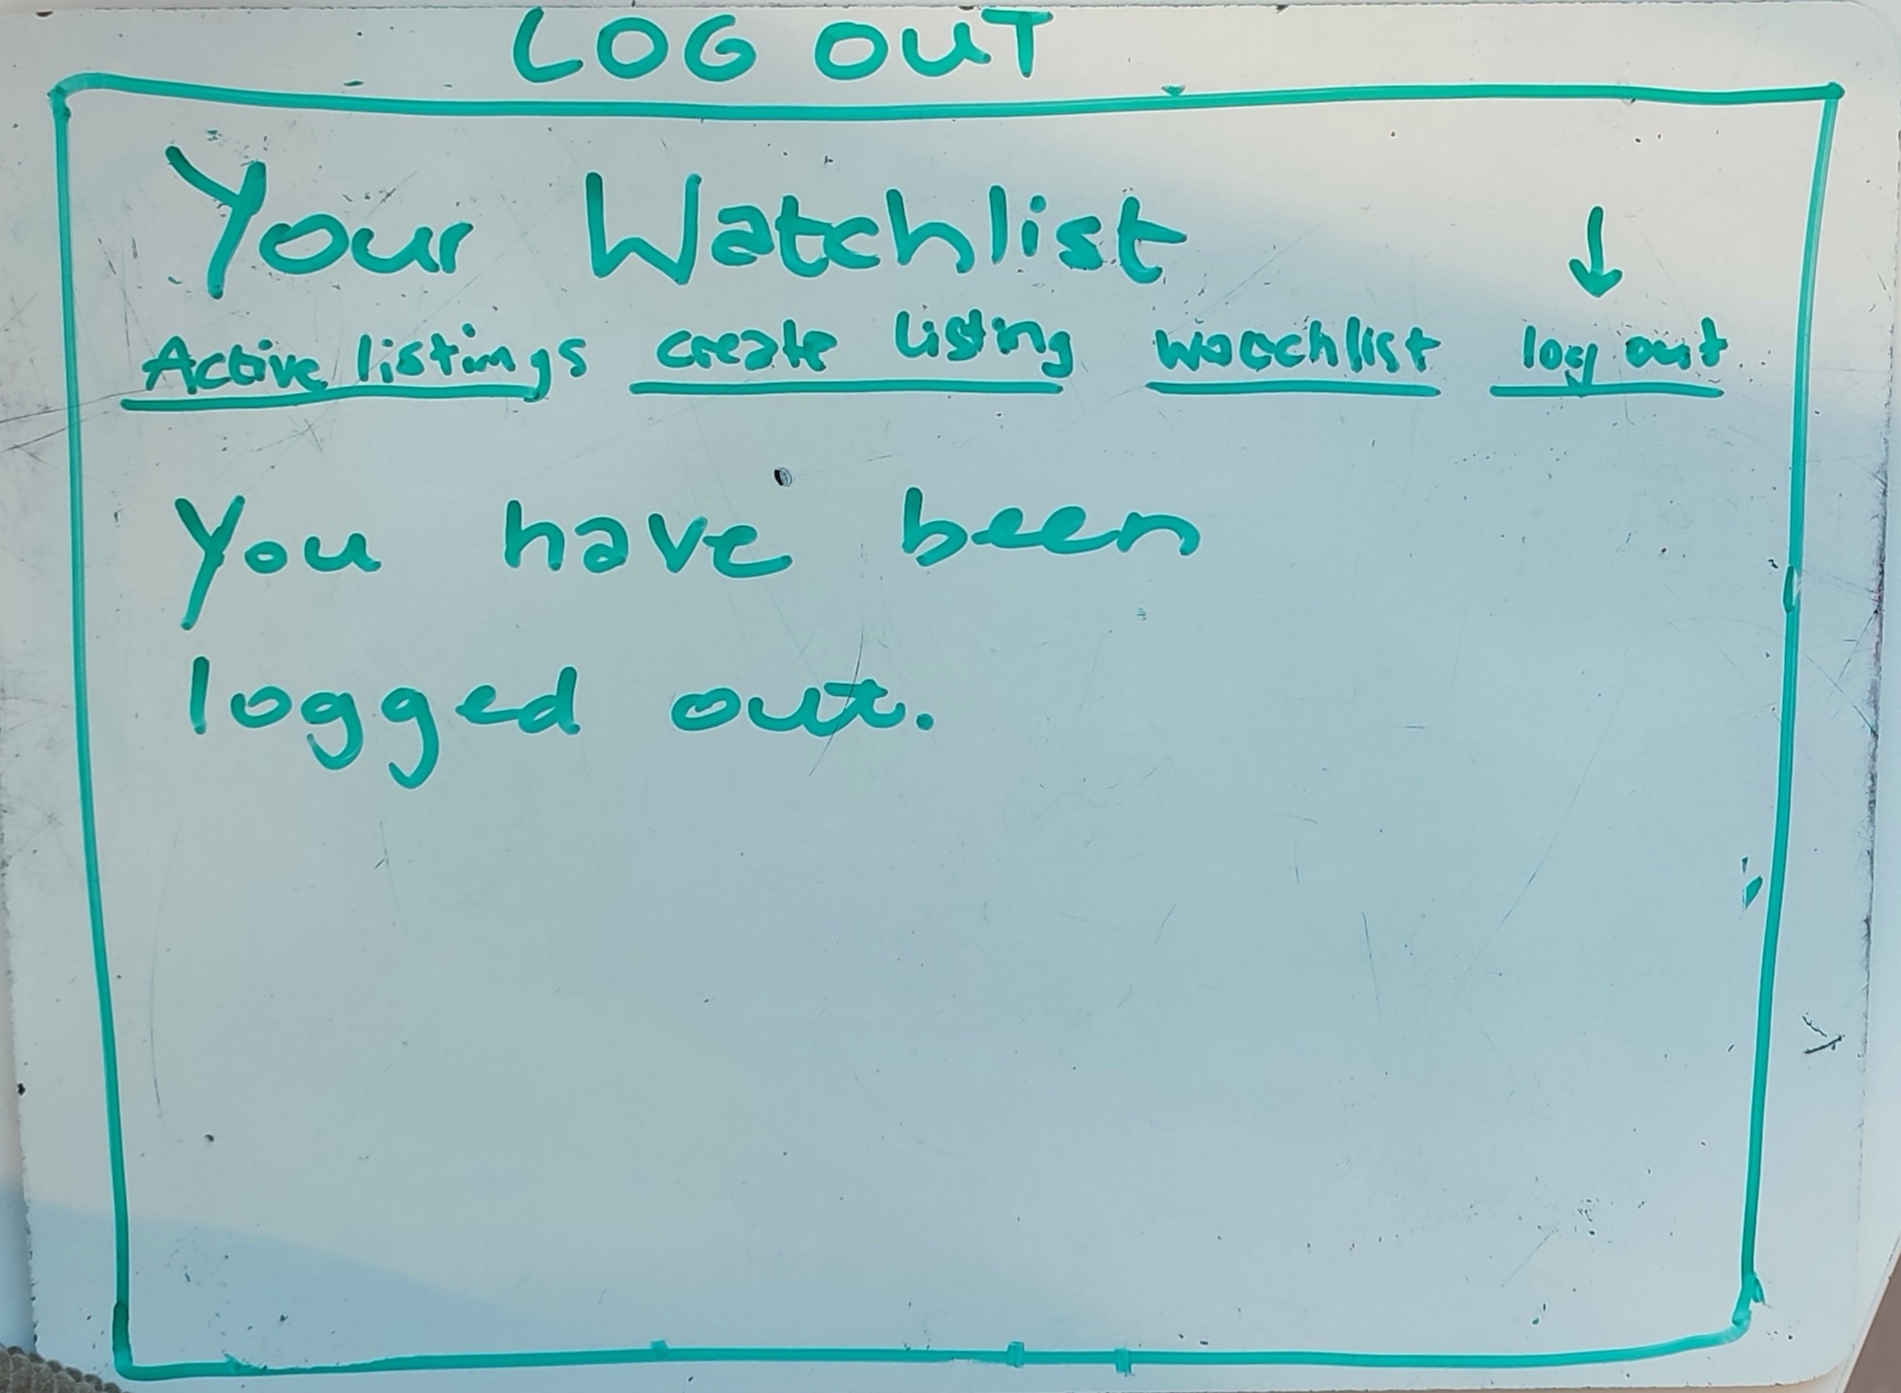 LOG OUT
Your Watchlist
Active listings create listing watchlist log out
You have been
logged out.